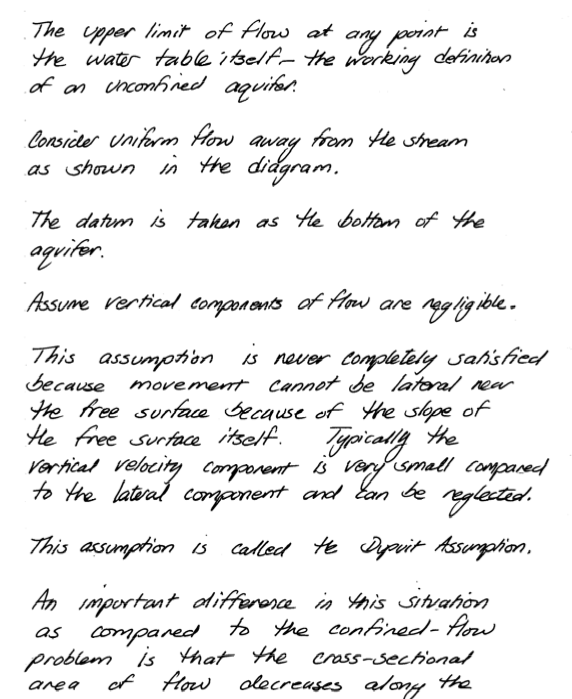 The upper limit of flow at any point is
the water table itself – the working definition
of an unconfined aquifer.
Consider uniform flow away from the stream
as shown in the diagram.
The datum is taken as the bottom of the
aquifer.
Assume vertical components of flow are negligible.
This assumption is never completely satisfied
because movement cannot be lateral near
the free surface because of the slope of
the free surface itself. Typically the
vertical velocity component is very small compared
to the lateral component and can be neglected.
This assumption is called the Dupuit Assumption.
An important difference in this situation
as compared to the confined-flow
problem is that the cross-sectional
area of flow decreases along the